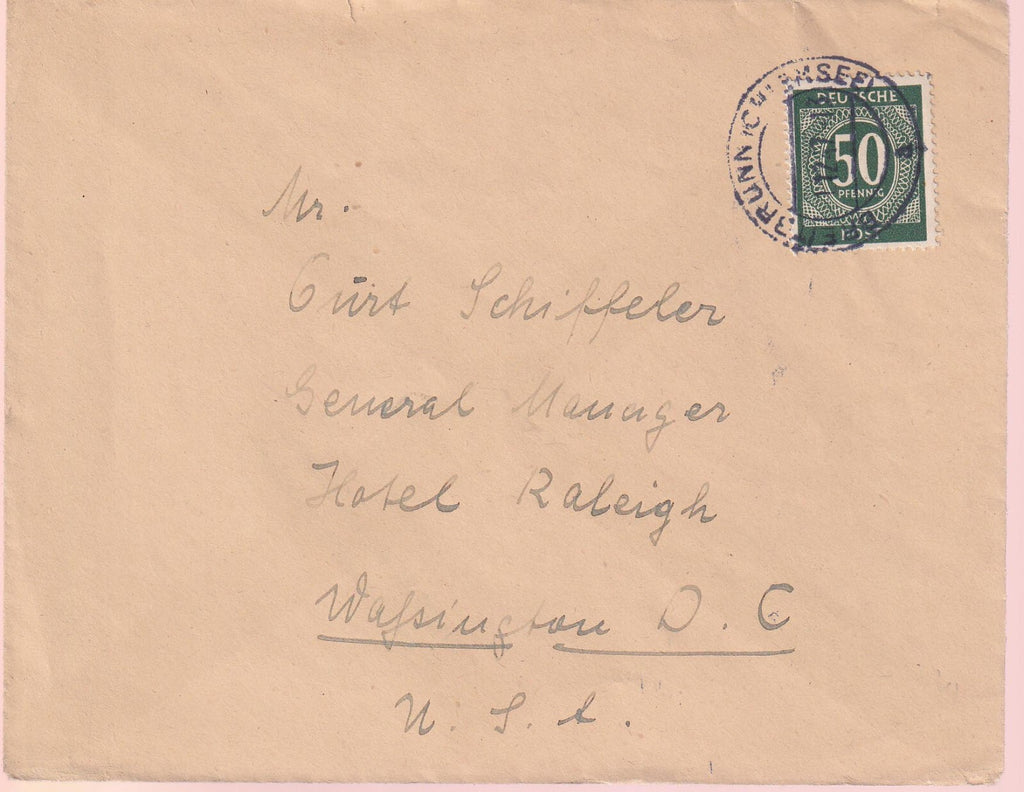 DEUTSCHE
50
PFENNIG
POST
Mr.
Curt Schiffeler
General Manager
Hotel Raleigh
Waßington D. C
U. S. A.